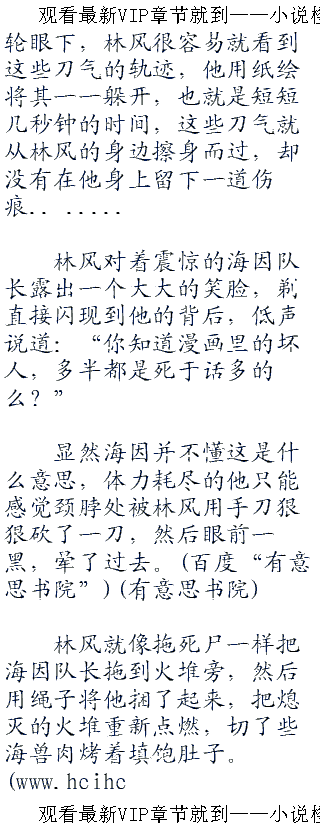 观看最新VIP章节就到——小说检
轮眼下，林风很容易就看到
这些刀气的轨迹，他用纸绘
将其一一躲开，也就是短短
几秒钟的时间，这些刀气就
从林风的身边擦身而过，却
没有在他身上留下一道伤
痕.. .....
林风对着震惊的海因队
长露出一个大大的笑脸，剃
直接闪现到他的背后，低声
说道：“你知道漫画里的坏
人，多半都是死于话多的
么？”
显然海因并不懂这是什
么意思，体力耗尽的他只能
感觉颈脖处被林风用手刀狠
狠砍了一刀，然后眼前一
黑，晕了过去。(百度“有意
思书院”)(有意思书院)
林风就像拖死尸一样把
海因队长拖到火堆旁，然后
用绳子将他捆了起来，把熄
灭的火堆重新点燃，切了些
海兽肉烤着填饱肚子。
(www.hcihc
观看最新VIP章节就到——小说检